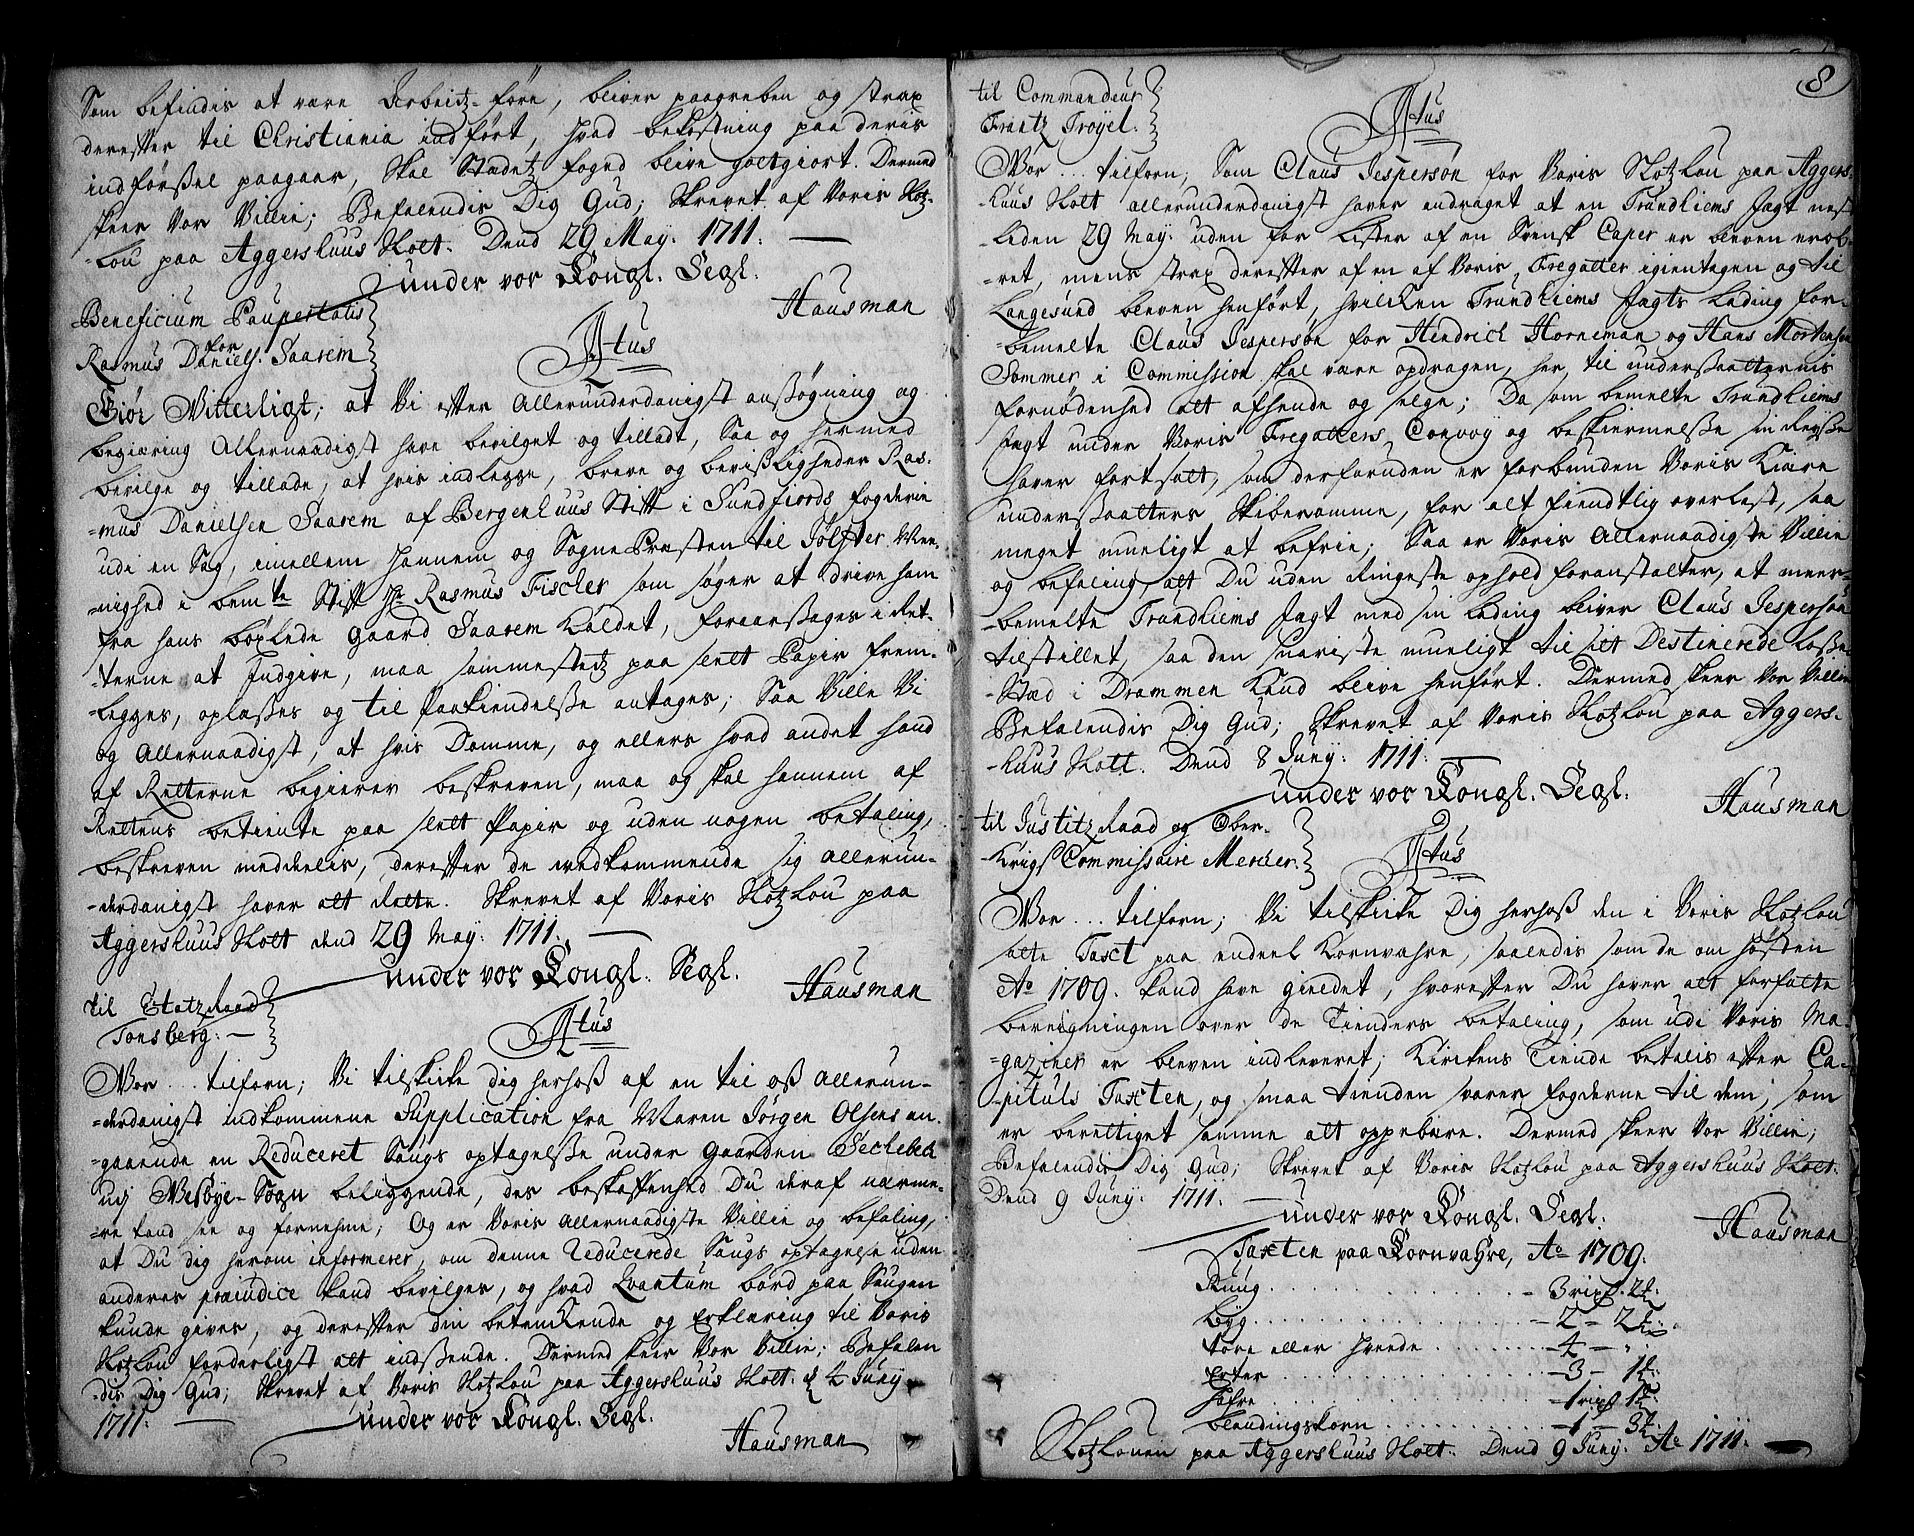 Som befindis at være Arbeitz-före, bliver paagreben og strax
derefter til Christiania indfört, hvad bekostning paa deris
indförßel paagaar, skal Stædetz foged blive goetgiort. Dermed
skeer Vor Villie; Befalendis Dig Gud; Skrevet af Voris Slotz-
-Lou paa Aggershuus Slott. Dend 29 May: 1711.
under vor Kongl. Segl.
Hausman
Beneficium Paupertatis
for
Rasmus Daniels: Saarem
Fr. 4tus
Giör Vitterligt; at Vi efter Allerunderdanigst anßögning og
begiæring Allernaadigst have bevilget og tilladt, Saa og hermed
bevilge og tillade, at hvis indlegge, breve og bevißligheder Ras-
-mus Danielsen Saarem af Bergenhuus Stift i Sundfiords fogderie
udi en Sag, imellem hannem og Sogne Præsten til Jölster Men-
-nighed i bemte Stift Hr Rasmus Fischer som söger at drive ham
fra hans böxlede gaard Saarem kaldet, foraarßages i Ret-
-terne at Indgive, maa sammestetz paa slett Papir frem-
-legges, oplæßes og til Paakiendelße antages; Saa Ville Vi
og Allernaadigst, at hvis Domme, og ellers hvad andet hand
af Retterne begierer beskreven, maa og skal hannem af
Rettens betiente paa slett Papir og uden nogen betaling,
beskreven meddeelis, derefter de vedkommende sig allerun-
-derdanigst haver alt rette. Skrevet af Voris Slotzlou paa
Aggershuus Slott dend 29 May: 1711.
under vor Kongl. Segl.
Hausman
til Etatz Raad
Tonsberg.
Fr. 4tus
Vor ... tilforn; Vi tilskicke dig herhoß af en til oß allerun-
-derdanigst indkommene Supplication fra Maren Jörgen Olsens an-
-gaaende en Reduceret Saugs optagelße under Gaarden Sechebech
udj Vesöye-Sogn beliggende, des beskaffenhed Du deraf nærme-
-re kand see og fornemme; Og er Voris Allernaadigste Villie og befaling,
at Du dig herom informerer, om denne reducerede Saugs optagelse uden
anderes præiudice kand bevilges, og hvad Qvantum bord paa Saugen
kunde gives, og derefter din betenckende og Erklæring til Voris
Slotzlou forderligst alt indßende. Dermed skeer Vor Villie; Befalen
-dis Dig Gud; Skrevet af Voris Slotzlou paa Aggershuus Slott. d 4 Junÿ
1711.
under vor Kongl. Segl.
Hausman
8
til Commandeur
Frantz Tröyel.
Fr. 4tus
Vor ... tilforn; Som Claus Jespersön for Voris Slotzlou paa Aggers-
-huus Slott allerunderdanigst haver andraget at en Trundhiems Jagt nest
-leden 29 May: uden for Lister af en Svensk Caper er bleven erob-
-ret, mens strax derefter af en af Voris Fregatter igientagen og til
Langesund bleven henfört, hvilcken Trundhiems Jagts lading for-
-bemelte Claus Jespersön for Hendrich Horneman og Hans Mortensön
Sommer i Commission skal være opdragen, her, til underßaatternis
fornödenhed alt afhende og selge; Da som bemelte Trundhiems
Jagt under Voris Fregatters Convoy og beskiermelße sin Reyße
haver fortsatt, som derforuden er forbunden Voris Kiære
underßaatters Skibe ramme, for alt fiendtlig overlast, saa
meget mueligt at befrie; Saa er Voris Allernaadigste Villie
og befaling, at Du uden Ringeste ophold foranstalter, at meer-
-bemelte Trundhiems Jagt med sin lading bliver Claus Jespersön
tilstillet, saa den snariste mueligt til sit Destinerede loße-
-Stæd i Drammen kand blive henfört. Dermed skeer Vor Villie
Befalendis Dig Gud; Skrevet af Voris Slotzlou paa Aggers-
-huus Slott. Dend 8 Junÿ: 1711.
under vor Kongl. Segl.
Hausman
til Justitz Raad og Ober-
-Krigs Commissaire Mercier.
Fr. 4tus
Vor ... tilforn; Vi tilskicke Dig herhoß den i Voris Slotzlou
satte Taxt paa endeel Kornvahre, saaledis som de om hösten
Ao 1709. kand have gieldet, hvorefter Du haver alt forfatte
beregningen over de Tienders betaling, som udi Voris Ma-
-gaziner er bleven indleveret; Kirckens Tiende betalis efter Ca-
-pituls Taxten, og smaa tienden svarer fogderne til dem, som
er berettiget samme alt oppebære. Dermed skeer Vor Villie;
Befalendis Dig Gud; Skrevet af Voris Slotzlou paa Aggershuus Slott.
Dend 9 Junÿ: 1711.
under vor Kongl. Segl.
Hausman
Taxten paa Kornvahre, Ao 1709.
Ruug . . . . . 3 rixd. 2
Byg . . . . . 2 - 2
Tore eller hvede . . . . . 4 -
Erter . . . . . 3 - 1
Hafre . . . . . 1 rixd 1
blandingskorn . . . . . 1 - 3
Slotzlouen paa Aggershuus Slott. Dend 9 Junÿ: Ao 1711.